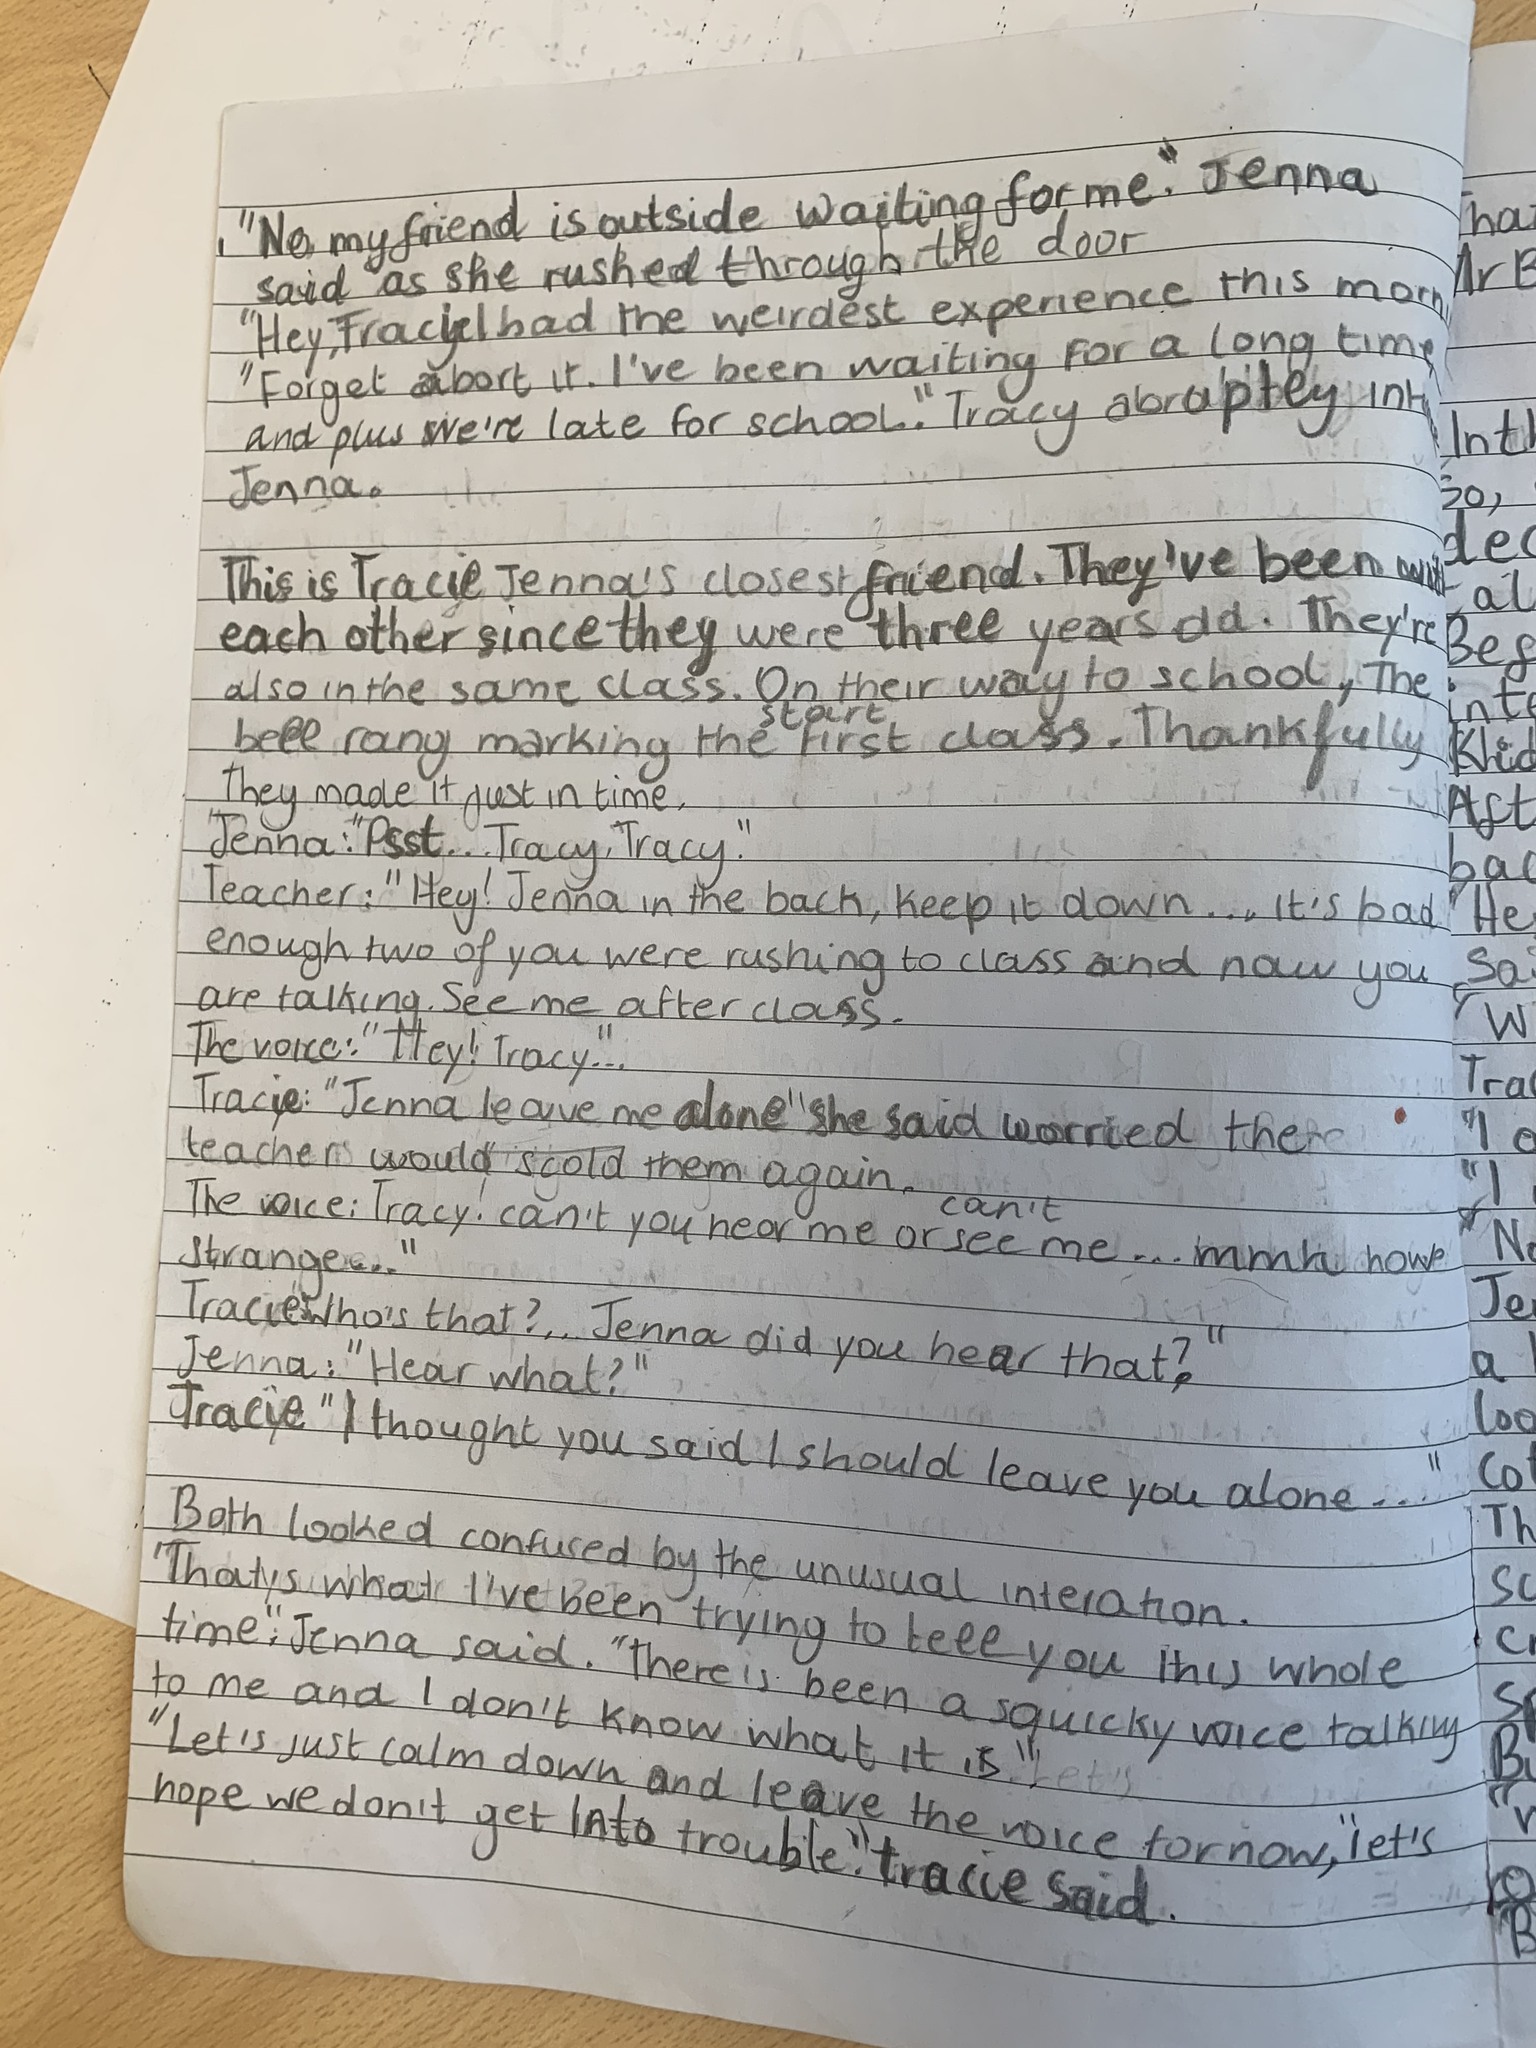 "No, my friend is outside waiting for me." Jenna
said as she rushed through the door
"Hey, Tracie I had the weirdest experience this morn
"Forget abort it. I've been waiting for a long time
and plus we're late for school." Tracy abraptley int
Jenna.
This is Tracie Jenna's closest friend. They've been with
each other since they were three years old. They're
also in the same class. On their way to school, The
start
bell rang marking the first class. Thankfully
They made it just in time.
Jenna: "Psst... Tracy, Tracy."
Teacher: "Hey! Jenna in the back, keep it down .... it's bad
enough two of you were rushing to class and now you
are talking. See me after class.
The voice: "Hey! Tracy"...
Tracie: "Jenna leave me alone" she said worried there
teacher would scold them again.
can't
The voice: Tracy! can't you hear me or see me ... mmh how
strange..."
Tracie "Who's that?... Jenna did you hear that?"
Jenna: "Hear what?"
Tracie "I thought you said I should leave you alone ... "
Both looked confused by the unusual interation.
"That's what I've been trying to tell you this whole
time", Jenna said. "There is been a squicky voice talking
to me and I don't know what it is" Let's
"Let's just calm down and leave the voice for now, "let's
hope we don't get into trouble." tracie said.
tha
Mr B
Inth
So,
dec
al
Bef
inte
Aft
bac
"He
Sa
"W
Tra
"I
"I
"No
Je
a
loo
cot
Th
sc
cr
Sp
Bu
B